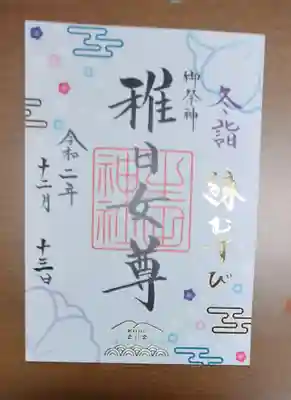 冬詣
縁むすび
御祭神
稚日女尊
令和二年
十二月
十三日